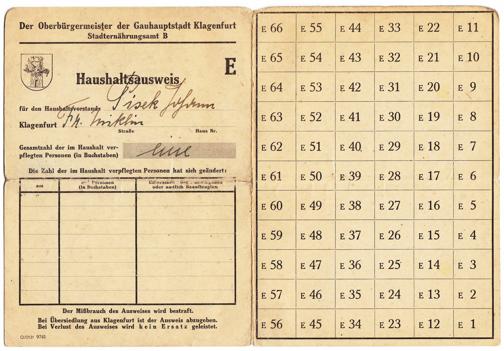 Der Oberbürgermeister der Gauhauptstadt Klagenfurt
Stadternährungsamt B
E
Haushaltsausweis
für den Haushaltsvorstand Pisek Johann
Klagenfurt
Straße Haus Nr.
Gesamtzahl der im Haushalt ver-
pflegten Personen (in Buchstaben)
Die Zahl der im Haushalt verpflegten Personen hat sich geändert:
am Personen
(in Buchstaben) oder amtlich Beauftragten
Der Mißbrauch des Ausweises wird bestraft.
Bei Übersiedlung aus Klagenfurt ist der Ausweis abzugeben.
Bei Verlust des Ausweises wird kein Ersatz geleistet.
E 66 E 55 E 44 E 33 E 22 E 11
E 65 E 54 E 43 E 32 E 21 E 10
E 64 E 53 E 42 E 31 E 20 E 9
E 63 E 52 E 41 E 30 E 19 E 8
E 62 E 51 E 40 E 29 E 18 E 7
E 61 E 50 E 39 E 28 E 17 E 6
E 60 E 49 E 38 E 27 E 16 E 5
E 59 E 48 E 37 E 26 E 15 E 4
E 58 E 47 E 36 E 25 E 14 E 3
E 57 E 46 E 35 E 24 E 13 E 2
E 56 E 45 E 34 E 23 E 12 E 1